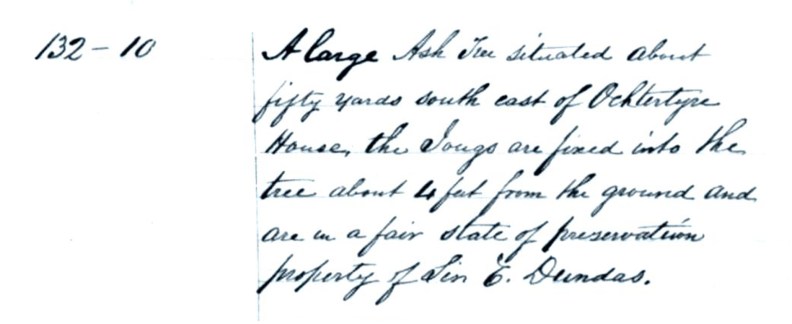 132 - 10 A large Ash Tree situated about
fifty yards south east of Ochtertyre
House, the Jougs are fixed into the
tree about 4 feet from the ground and
are in a fair state of preservation
property of Sir E. Dundas.